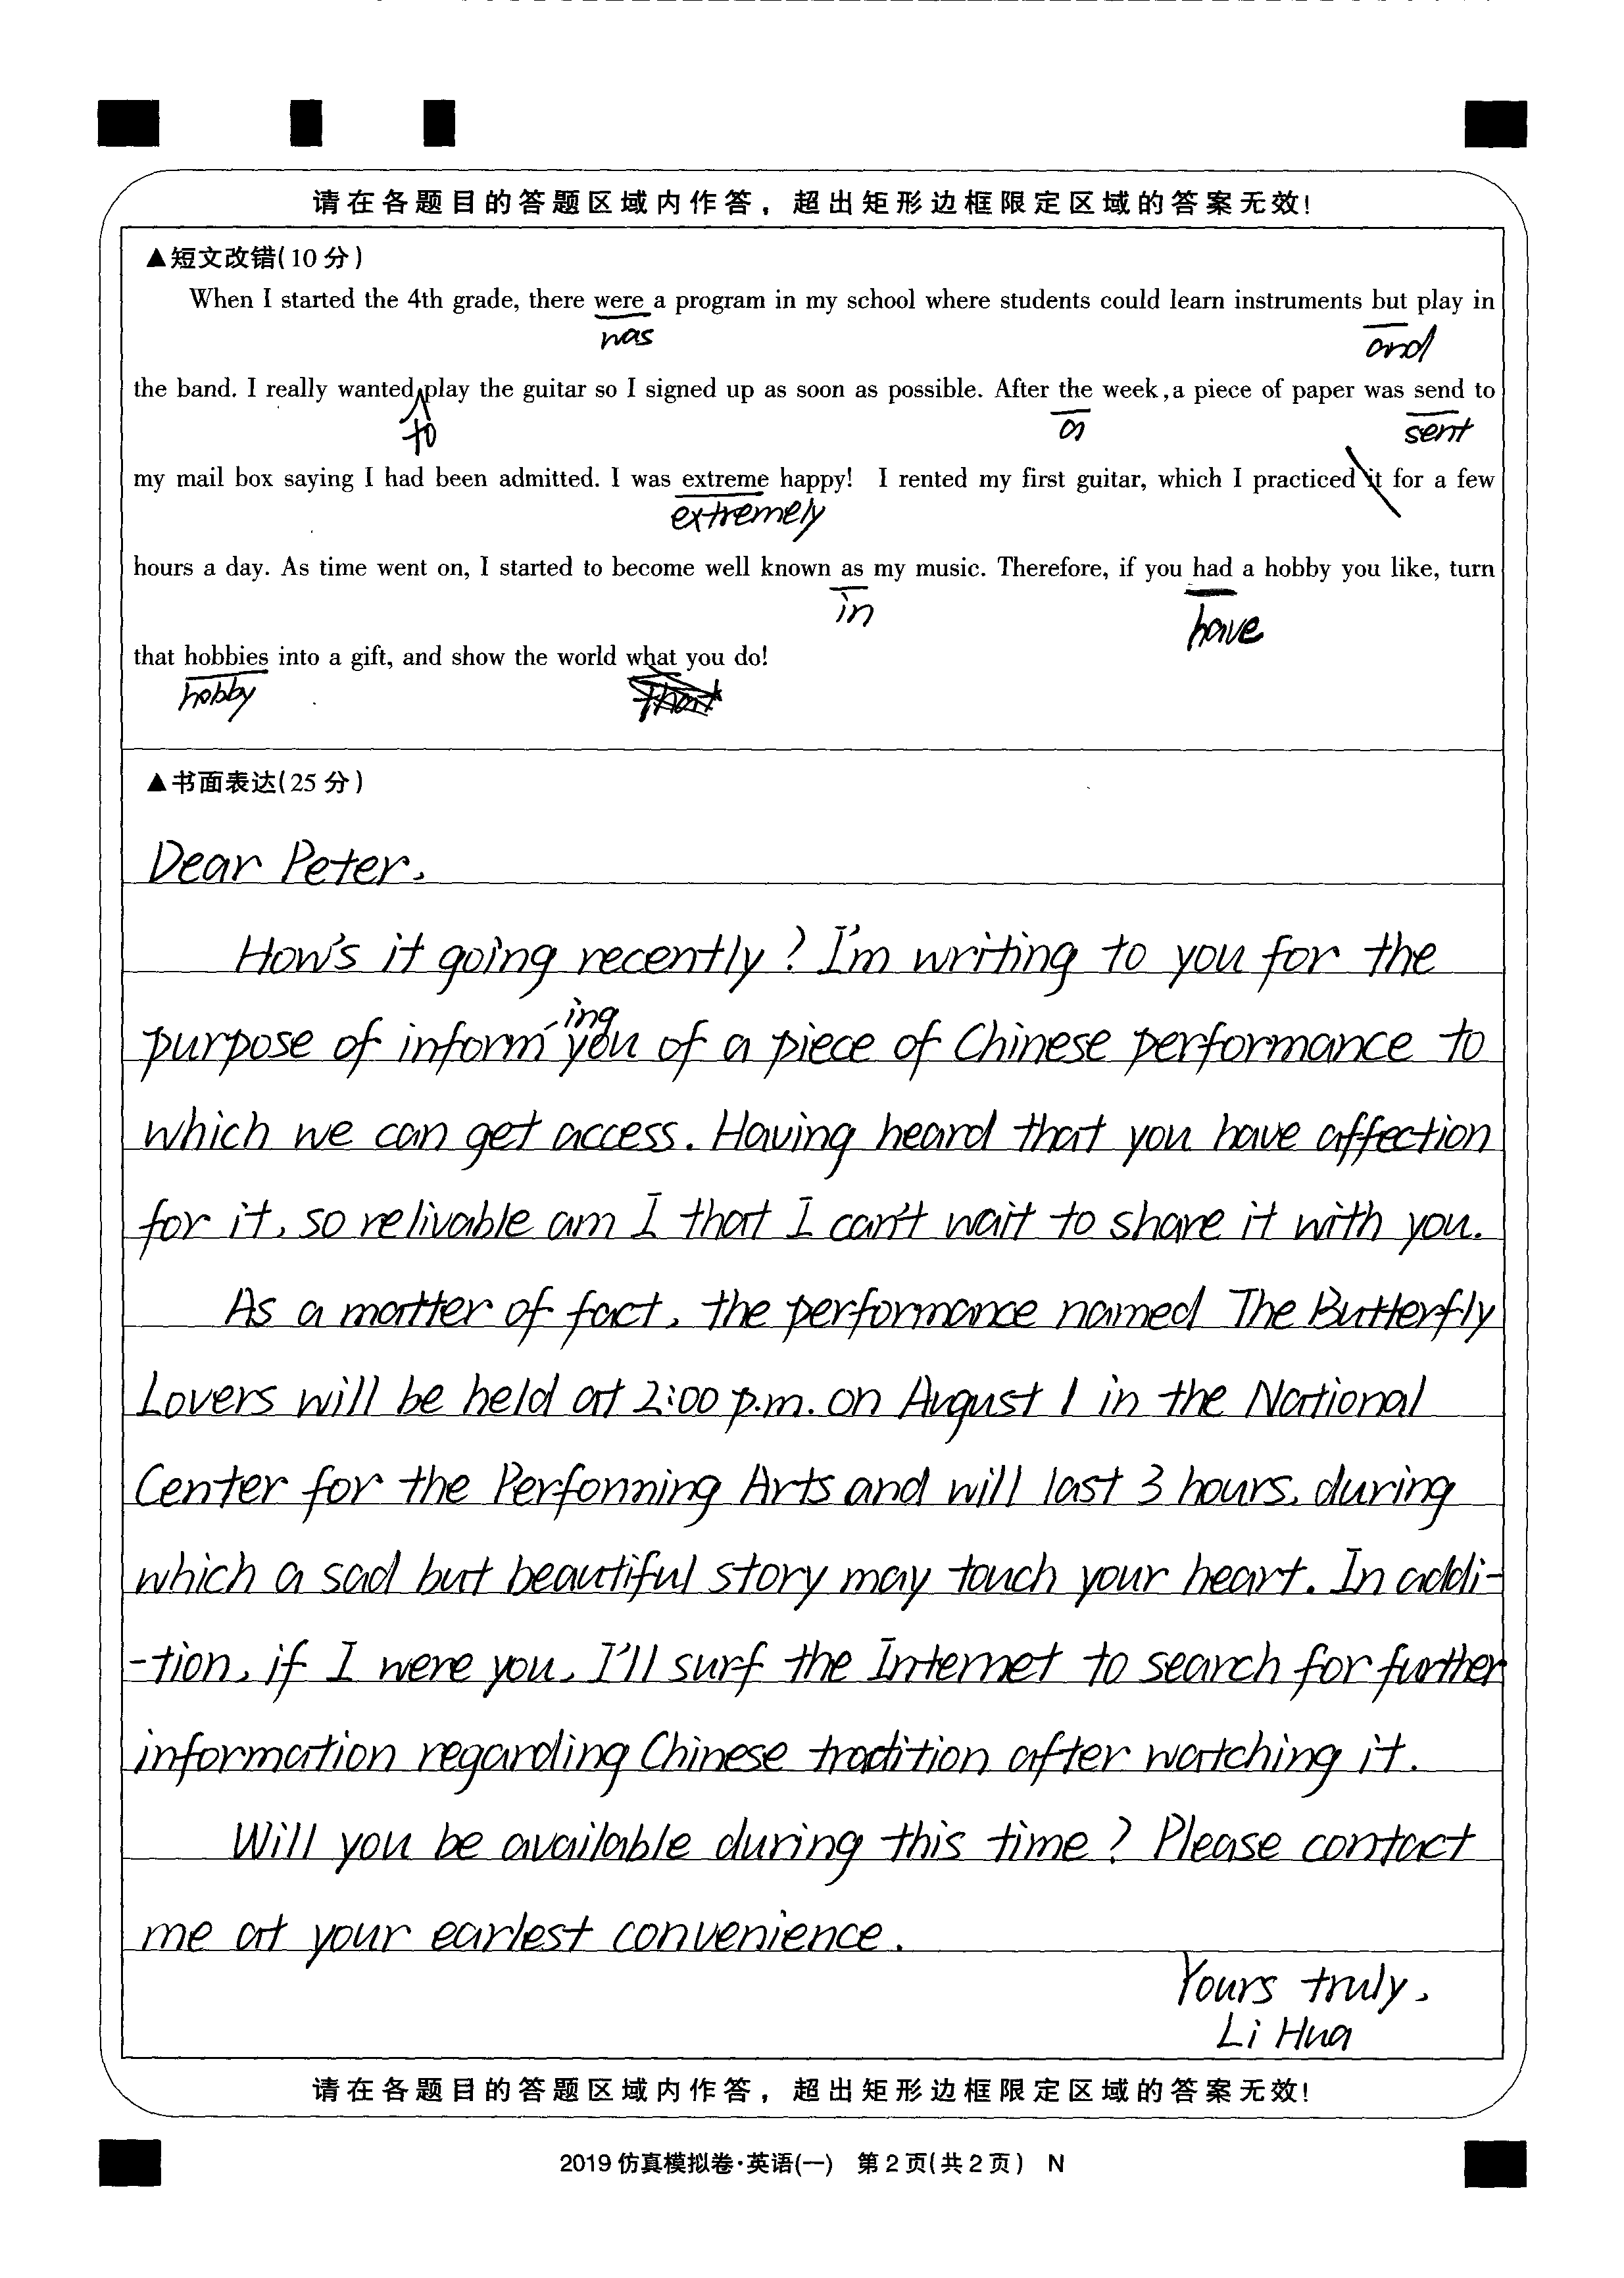 请在各题目的答题区域内作答，超出矩形边框限定区域的答案无效!
▲短文改错(10分)
When I started the 4th grade, there were a program in my school where students could learn instruments but play in
was and
the band. I really wanted play the guitar so I signed up as soon as possible. After the week, a piece of paper was send to
to a sent
my mail box saying I had been admitted. I was extreme happy! I rented my first guitar, which I practiced it for a few
extremely
hours a day. As time went on, I started to become well known as my music. Therefore, if you had a hobby you like, turn
in have
that hobbies into a gift, and show the world what you do!
hobby that
▲书面表达(25分)
Dear Peter,
How's it going recently? I'm writing to you for the
ing
purpose of inform you of a piece of Chinese performance to
which we can get access. Having heard that you have affection
for it, so relivable am I that I can't wait to share it with you.
As a matter of fact, the performance named The Butterfly
Lovers will be held at 2:00 p.m. on August 1 in the National
Center for the Performing Arts and will last 3 hours, during
which a sad but beautiful story may touch your heart. In addi-
-tion, if I were you, I'll surf the Internet to search for further
information regarding Chinese tradition after watching it.
Will you be available during this time? Please contact
me at your earlest convenience.
Yours truly,
Li Hua
请在各题目的答题区域内作答，超出矩形边框限定区域的答案无效!
2019仿真模拟卷·英语(一) 第2页(共2页) N